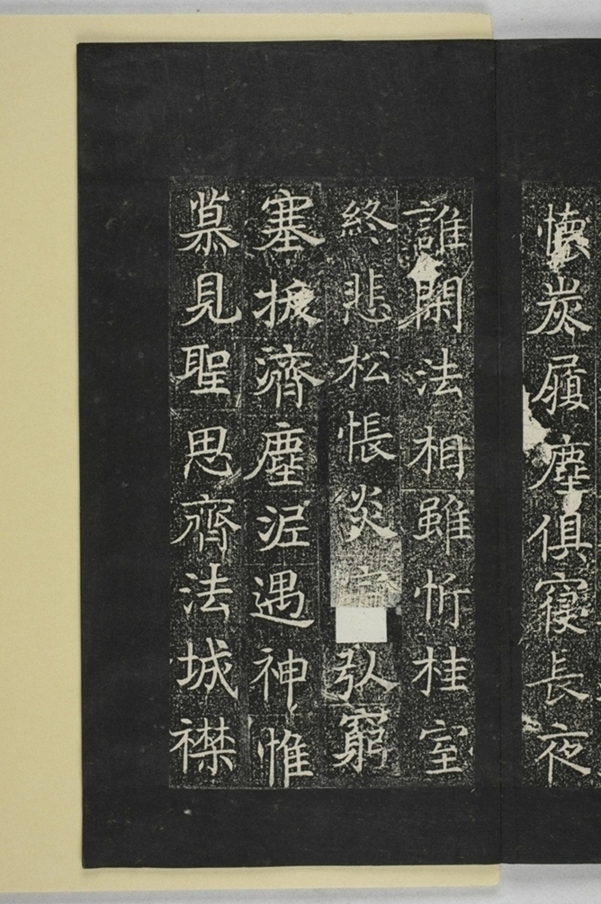 懷炭履塵俱寢長夜
誰閑法相雖忻桂室
終悲松帳炎弘窮
塞拔濟塵泥遇神惟
慕見聖思齊法城襟